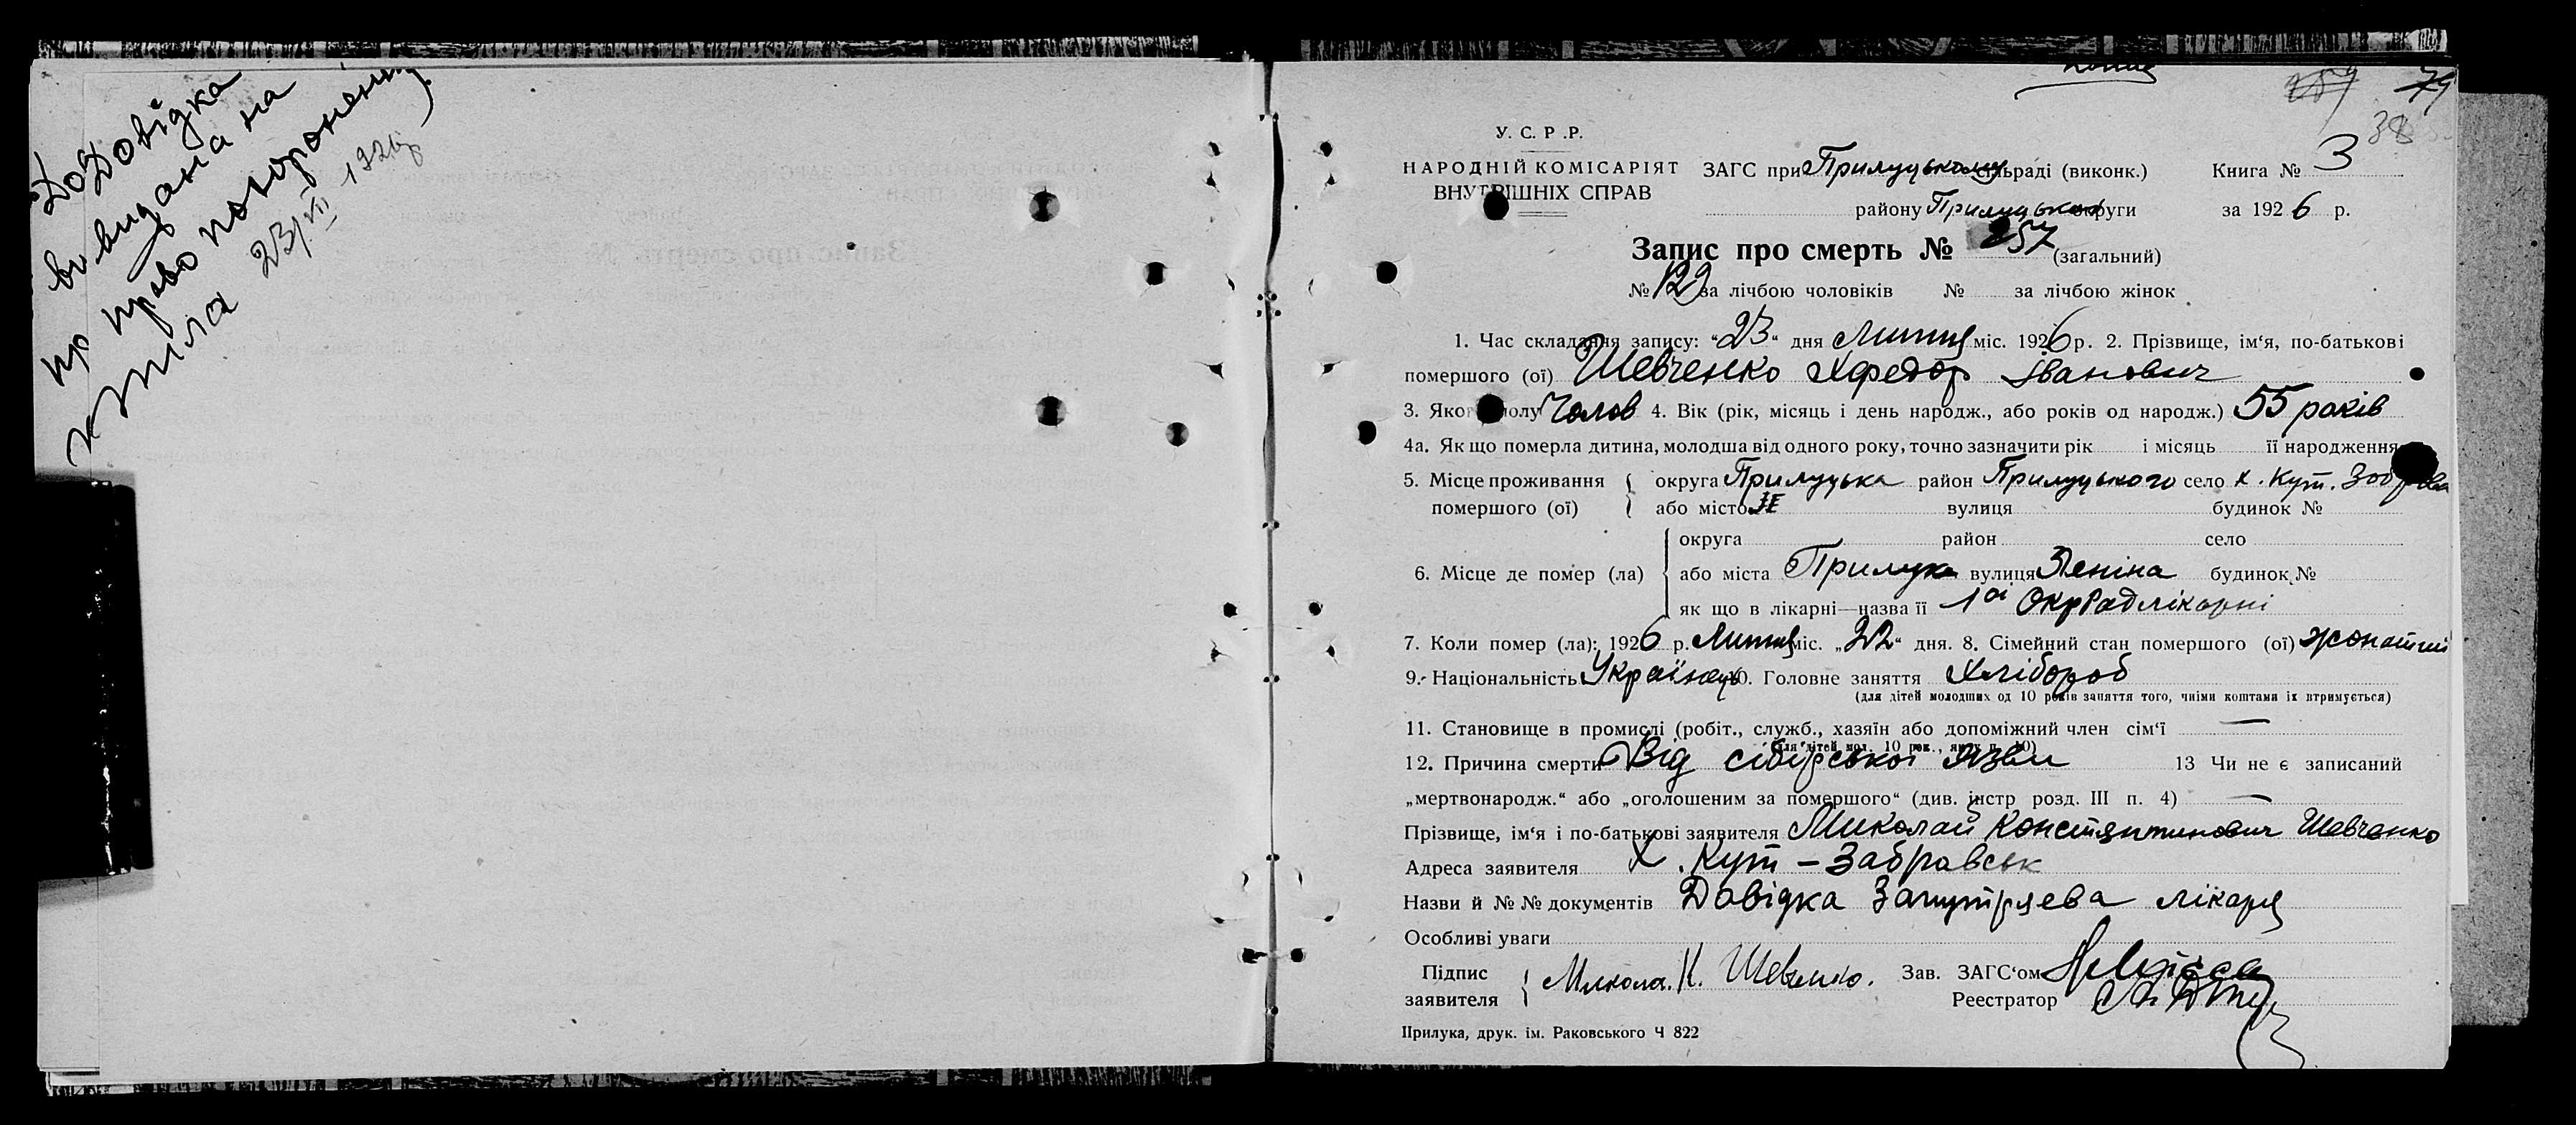 Довідка
видана на
право похоронення
тіла
23/VII 1926р
79
38
У. С. Р .Р.
НАРОДНІЙ КОМІСАРІЯТ
ВНУТРІШНІХ СПРАВ
ЗАГС при Прилуцькому сільраді (виконк.) Книга № 3
району Прилуцької округи за 1926 р.
Запис про смерть № 257 (загальний)
№ 129 за лічбою чоловіків № за лічбою жінок
1. Час складання запису: "23" дня Липня міс. 1926 р. 2. Прізвище, ім‘я, по-батькові
помершого (ої) Шевченко Хфедор Іванович
3. Якого полу Чолов 4. Вік (рік, місяць і день народж., або років од народж.) 55 років
4а. Як що померла дитина, молодша від одного року, точно зазначити рік і місяць її народження
5. Місце проживання помершого (ої) округа Прилуцька район Прилуцького село х. Кут.
або місто вулиця будинок №
6. Місце де помер (ла) округа район село
або міста Прилука вулиця Леніна будинок №
як що в лікарні—назва її 1ої ОкрРадлікарні
7. Коли помер (ла): 1926 р. Липня міс. „22“ дня. 8. Сімейний стан помершого (ої) жонатий
9. Національність Українець 10. Головне заняття Хлібороб
(для дітей молодших од 10 років заняття того, чиїми коштами їх втримується)
11. Становище в промислі (робіт., служб., хазяїн або допоміжний член сім‘ї —
(для дітей мол. 10 рок., як у п. 10)
12. Причина смерти Від сібірської язви 13 Чи не є записаний
„мертвонародж.“ або „оголошеним за помершого“ (див. інстр розд. III п. 4) —
Прізвище, ім‘я і по-батькові заявителя Миколай Константинович Шевченко
Адреса заявителя Х. Кут – Забравськ
Назви й №№ документів Довідка лікаря
Особливі уваги
Підпис заявителя Микола. К. Шевченко. Зав. ЗАГС‘ом
Реестратор
Прилука, друк. ім. Раковського Ч 822